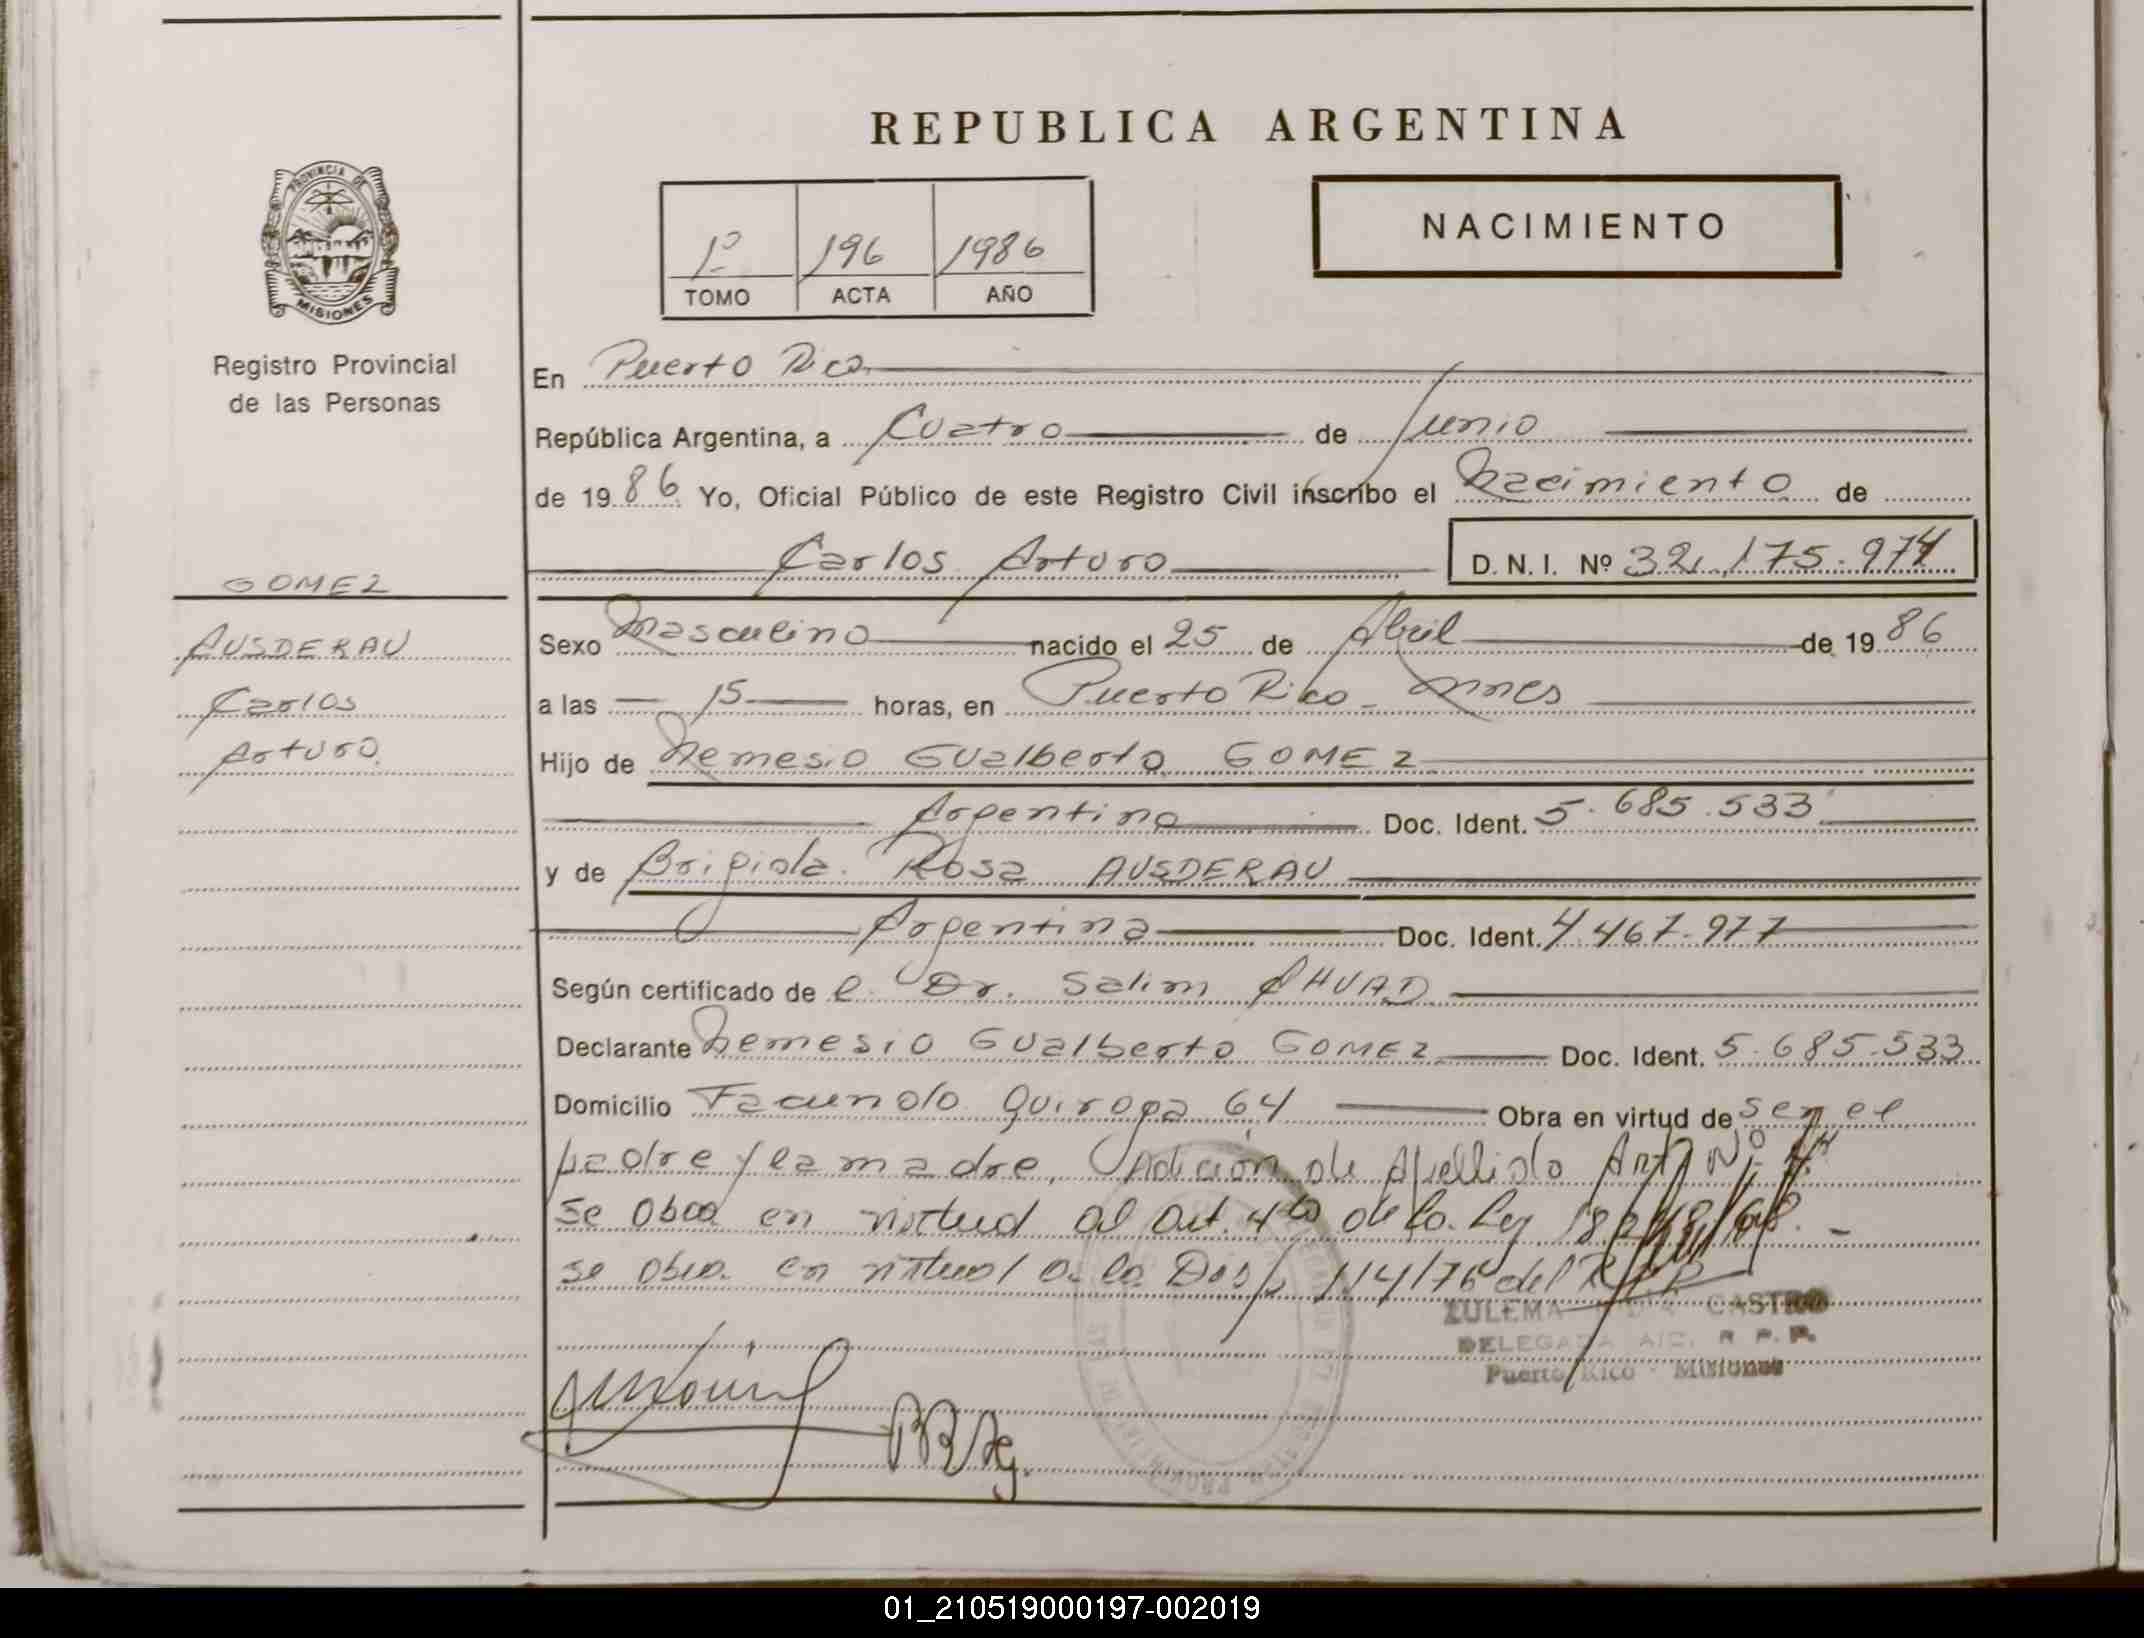 REPUBLICA ARGENTINA
PROVINCIA DE
MISIONES
Registro Provincial
de las Personas
1º 196 1986
TOMO ACTA AÑO
NACIMIENTO
GOMEZ
AUSDERAU
Carlos
Arturo
En Puerto Rico
República Argentina, a Cuatro de Junio
de 1986 Yo, Oficial Público de este Registro Civil inscribo el Nacimiento de
Carlos Arturo D. N. I. Nº 32.175.974
Sexo Masculino nacido el 25 de Abril de 1986
a las 15 horas, en Puerto Rico - Mnes
Hijo de Nemesio Gualberto GOMEZ
Argentino Doc. Ident. 5.685.533
y de Brigida Rosa AUSDERAU
Argentina Doc. Ident. 4.467.977
Según certificado de el Dr. Salim AHUAD
Declarante Nemesio Gualberto GOMEZ Doc. Ident. 5.685.533
Domicilio Facundo Quiroga 64 Obra en virtud de ser el
padre y la madre, Adición de Apellido Art Nº
se obra en virtud al art. 4to de la Ley
se obra en virtud a la Disp 114/76 del
ZULEMA CASTRO
DELEGADA R. P. P.
Puerto Rico - Misiones
01_210519000197-002019